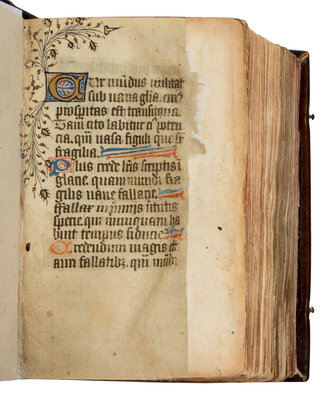 Cur mūdus militat
sub vana gl̄ia cuiꝰ
prosp̄itas est transitoria
Tam cito labitur eiꝰ poten
cia. quā vasa figuli que sūt
fragilia.
Plus crede lr̄is scriptis ī
glacie quam mundi fra
gilis vane fallacie.
fallax in p̄mijs virtutis
specie. qui nunquam ha
buit tempus fiducie
Credendum magis est
auris fallatibꝫ. quā